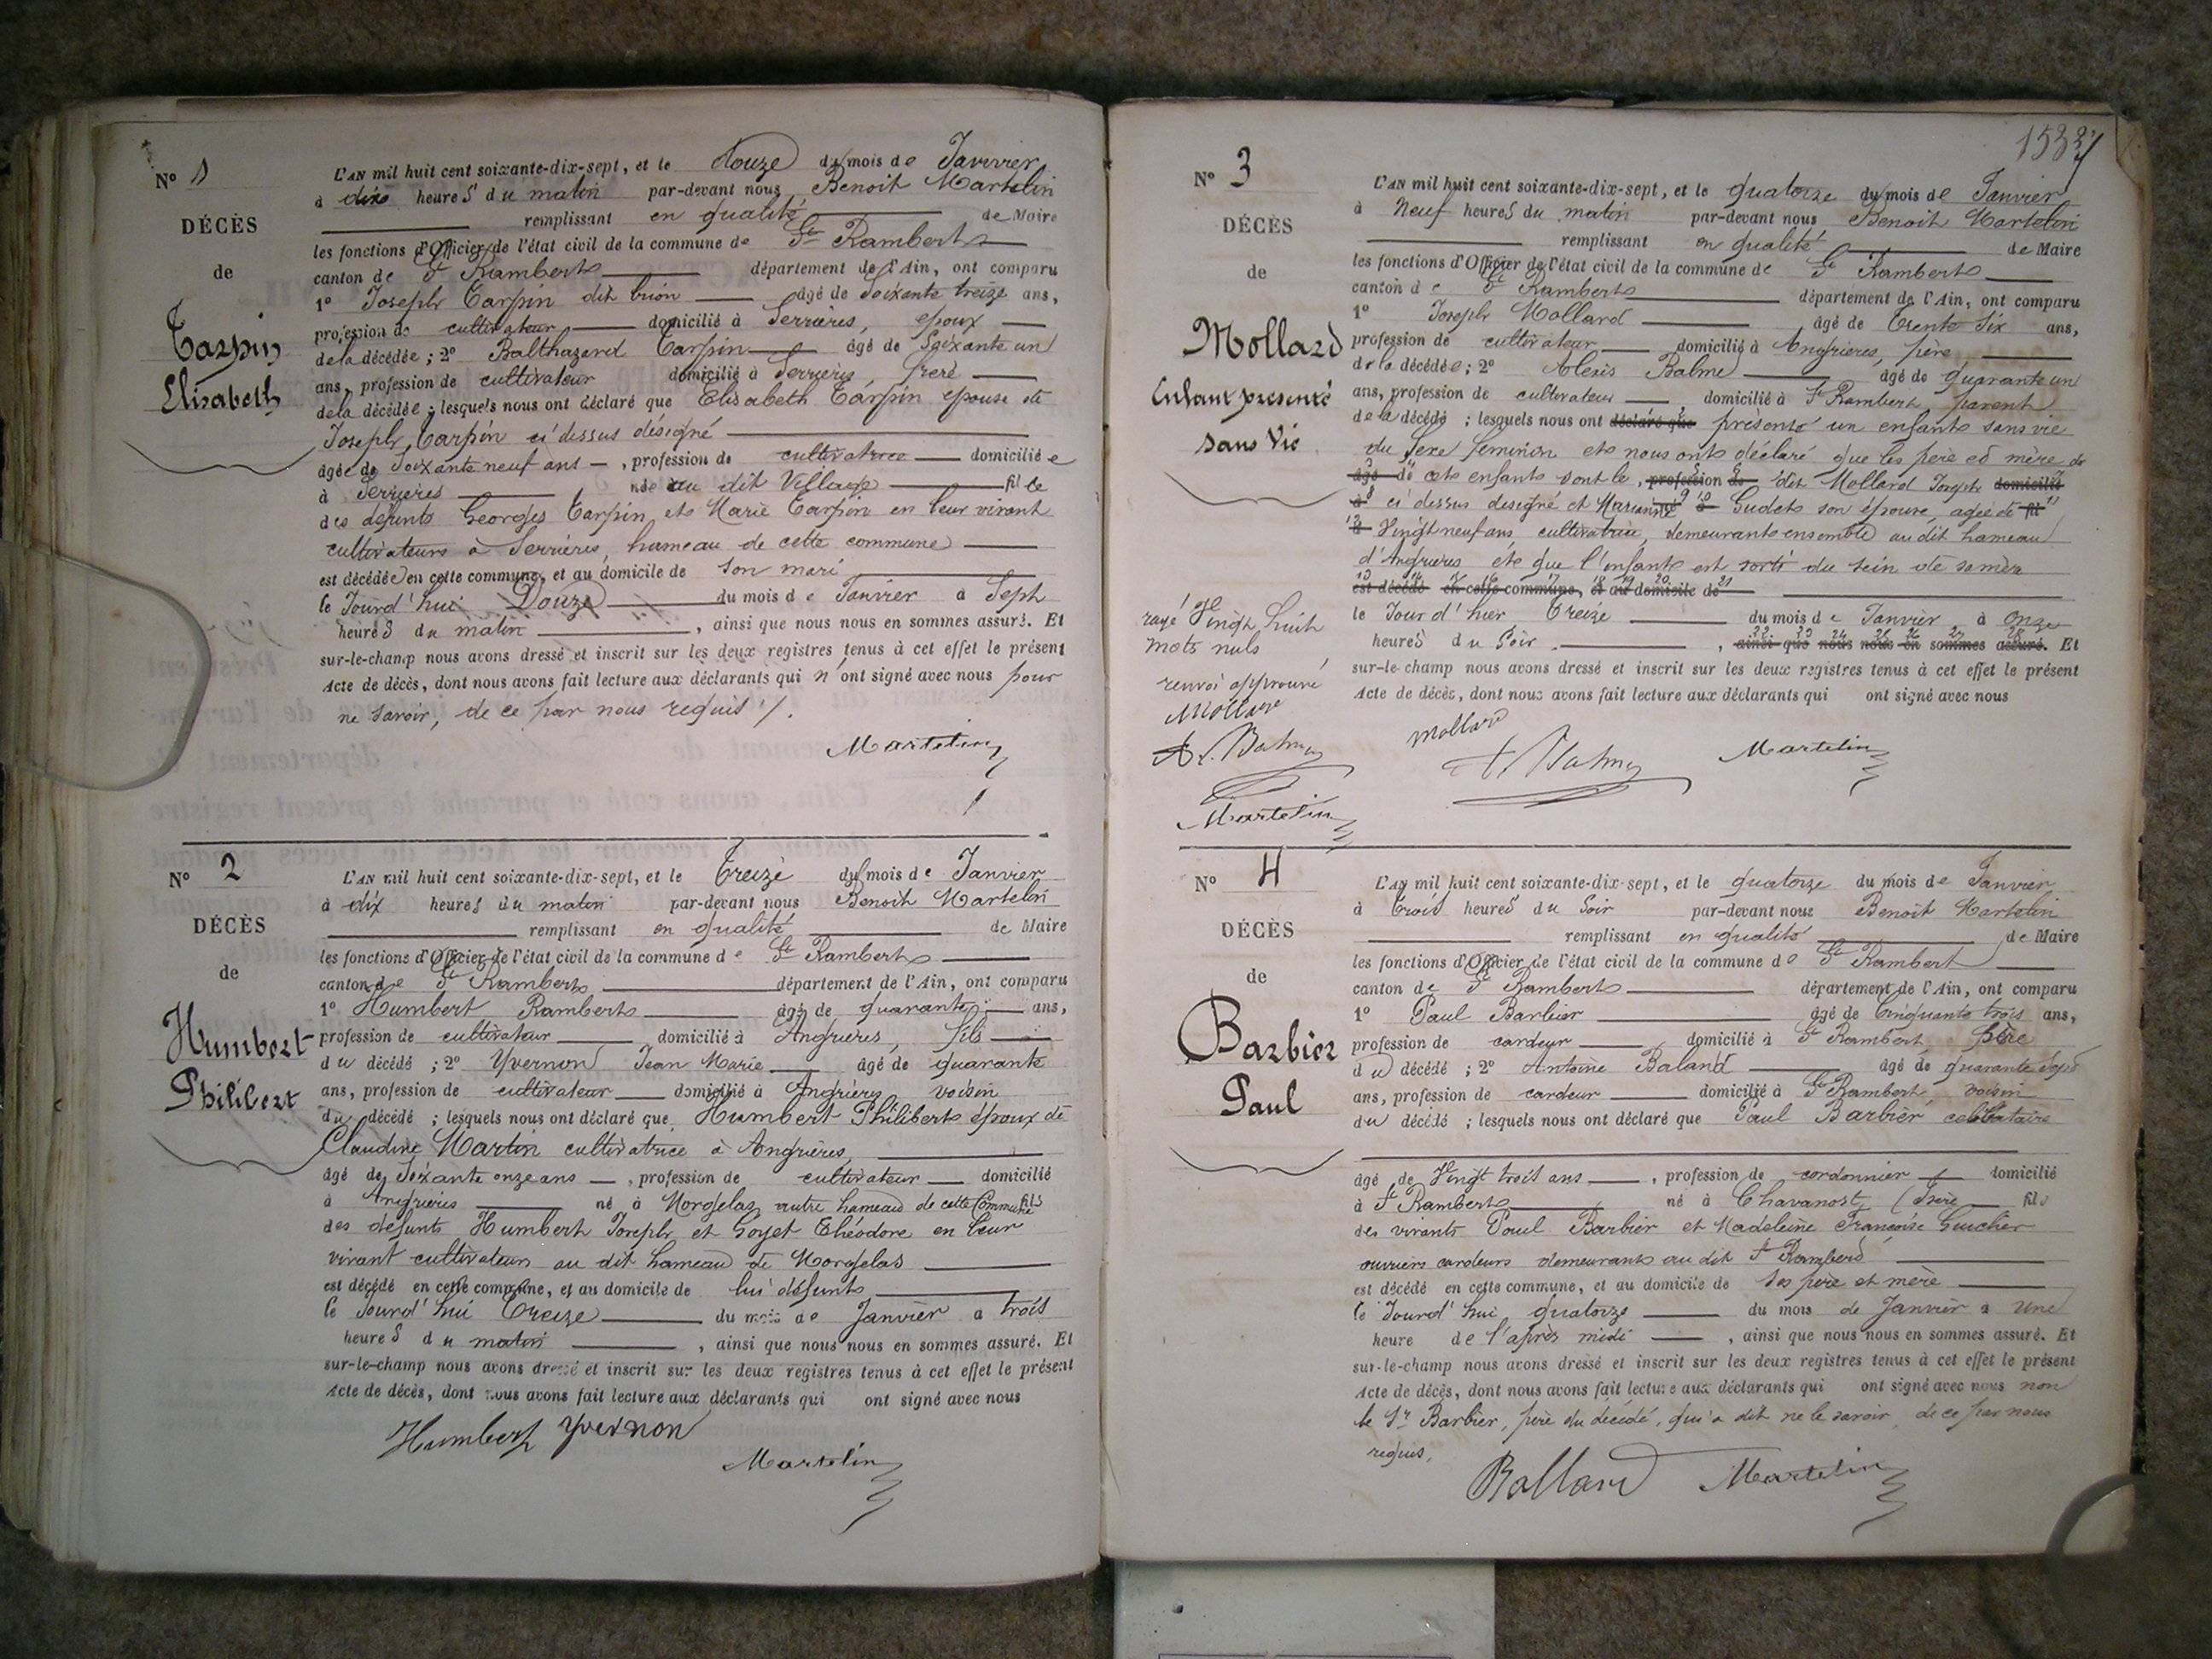 N° 1
DÉCÈS
de
Tarpin
Elisabeth
L'AN mil huit cent soixante-dix-sept, et le douze du mois de Janvier
à dix heures du matin par-devant nous Benoit Martelin
remplissant en qualité de Maire
les fonctions d'Officier de l'état civil de la commune de St Rambert
canton de St Rambert département de l'Ain, ont comparu
1° Joseph Tarpin dit brion âgé de Soixante treize ans,
profession de cultivateur domicilié à Serrières, epoux
de la décédée ; 2° Balthazard Tarpin âgé de Soixante un
ans, profession de cultivateur domicilié à Serrières, frere
de la décédée ; lesquels nous ont déclaré que Elisabeth Tarpin epouse de
Joseph Tarpin ci dessus désigné
âgée de Soixante neuf ans, profession de cultivatrice domiciliée
à Serrières née au dit Village fille
des défunts Georges Tarpin et Marie Tarpin en leur vivant
cultivateurs à Serrières, hameau de cette commune
est décédée en cette commune, et au domicile de son mari
le Jourd'hui Douze du mois de Janvier à Sept
heures du matin, ainsi que nous nous en sommes assuré. Et
sur-le-champ nous avons dressé et inscrit sur les deux registres tenus à cet effet le présent
Acte de décès, dont nous avons fait lecture aux déclarants qui n'ont signé avec nous pour
ne savoir, de ce par nous requis /.
Martelin
N° 2
DÉCÈS
de
Humbert
Philibert
L'AN mil huit cent soixante-dix-sept, et le Treize du mois de Janvier
à dix heures du matin par-devant nous Benoit Martelin
remplissant en qualité de Maire
les fonctions d'Officier de l'état civil de la commune de St Rambert
canton de St Rambert département de l'Ain, ont comparu
1° Humbert Rambert âgé de quarante ans,
profession de cultivateur domicilié à Angrieres, fils
du décédé ; 2° Yvernon Jean Marie âgé de quarante
ans, profession de cultivateur domicilié à Angrières voisin
du décédé ; lesquels nous ont déclaré que Humbert Philibert époux de
Claudine Martin cultivatrice à Angrières,
âgé de Soixante onze ans, profession de cultivateur domicilié
à Angrières né à Morgelas autre hameau de cette Commune fils
des défunts Humbert Joseph et Goyet Théodore en leur
vivant cultivateurs au dit hameau de Morgelas
est décédé en cette commune, et au domicile de lui défunt
le Jourd'hui Treize du mois de Janvier à trois
heures du matin, ainsi que nous nous en sommes assuré. Et
sur-le-champ nous avons dressé et inscrit sur les deux registres tenus à cet effet le présent
Acte de décès, dont nous avons fait lecture aux déclarants qui ont signé avec nous
Humbert Yvernon
Martelin
N° 3
DÉCÈS
de
Mollard
Enfant présenté
sans Vie
L'AN mil huit cent soixante-dix-sept, et le quatorze du mois de Janvier
à Neuf heures du matin par-devant nous Benoit Martelin
remplissant en qualité de Maire
les fonctions d'Officier de l'état civil de la commune de St Rambert
canton de St Rambert département de l'Ain, ont comparu
1° Joseph Mollard âgé de Trente Six ans,
profession de cultivateur domicilié à Angrieres, père
de la décédée ; 2° Alexis Balme âgé de quarante un
ans, profession de cultivateur domicilié à St Rambert, parent
de la décédé ; lesquels nous ont déclaré que présenté un enfant sans vie
du Sexe feminin et nous ont déclaré que les père et mère de
âgé de cet enfant sont le, profession de dit Mollard Joseph domicilié
à ci dessus designé et Marianne à Gudet son épouse, agée de fil
d Vingt neuf ans, cultivatrice, demeurant ensemble au dit hameau
d'Angrieres et que l'enfant est sorti du sein de sa mère
est décédé en cette commune, et au domicile de
le Jour d'hier Treize du mois de Janvier à Onze
heures du Soir, ainsi que nous nous en sommes assuré. Et
sur-le-champ nous avons dressé et inscrit sur les deux registres tenus à cet effet le présent
Acte de décès, dont nous avons fait lecture aux déclarants qui ont signé avec nous
rayé Vingt huit
mots nuls
renvoi approuvé
Mollard
A. Balme
Martelin
Mollard
A. Balme
Martelin
N° 4
DÉCÈS
de
Barbier
Paul
L'AN mil huit cent soixante-dix-sept, et le quatorze du mois de Janvier
à Trois heures du Soir par-devant nous Benoit Martelin
remplissant en qualité de Maire
les fonctions d'Officier de l'état civil de la commune de St Rambert
canton de St Rambert département de l'Ain, ont comparu
1° Paul Barbier âgé de Cinquante trois ans,
profession de cardeur domicilié à St Rambert père
du décédé ; 2° Antoine Baland âgé de quarante sept
ans, profession de cardeur domicilié à St Rambert voisin
du décédé ; lesquels nous ont déclaré que Paul Barbier celibataire
âgé de Vingt trois ans, profession de cordonnier domicilié
à St Rambert, né à Chavanost (Isere fils
des vivants Paul Barbier et Madeleine Françoise Guicher
ouvriers cardeurs demeurant au dit St Rambert
est décédé en cette commune, et au domicile de ses père et mère
le Jourd'hui quatorze du mois de Janvier à Une
heure de l'après midi, ainsi que nous nous en sommes assuré. Et
sur-le-champ nous avons dressé et inscrit sur les deux registres tenus à cet effet le présent
Acte de décès, dont nous avons fait lecture aux déclarants qui ont signé avec nous non
le Sr Barbier, père du décédé, qui a dit ne le savoir de ce par nous
requis.
Balland Martelin